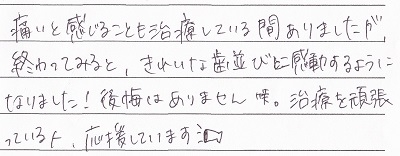 痛いと感じることも治療している間ありましたが、
終わってみると、きれいな歯並びに感動するように
なりました!後悔はありません。治療を頑張
っている人、応援しています